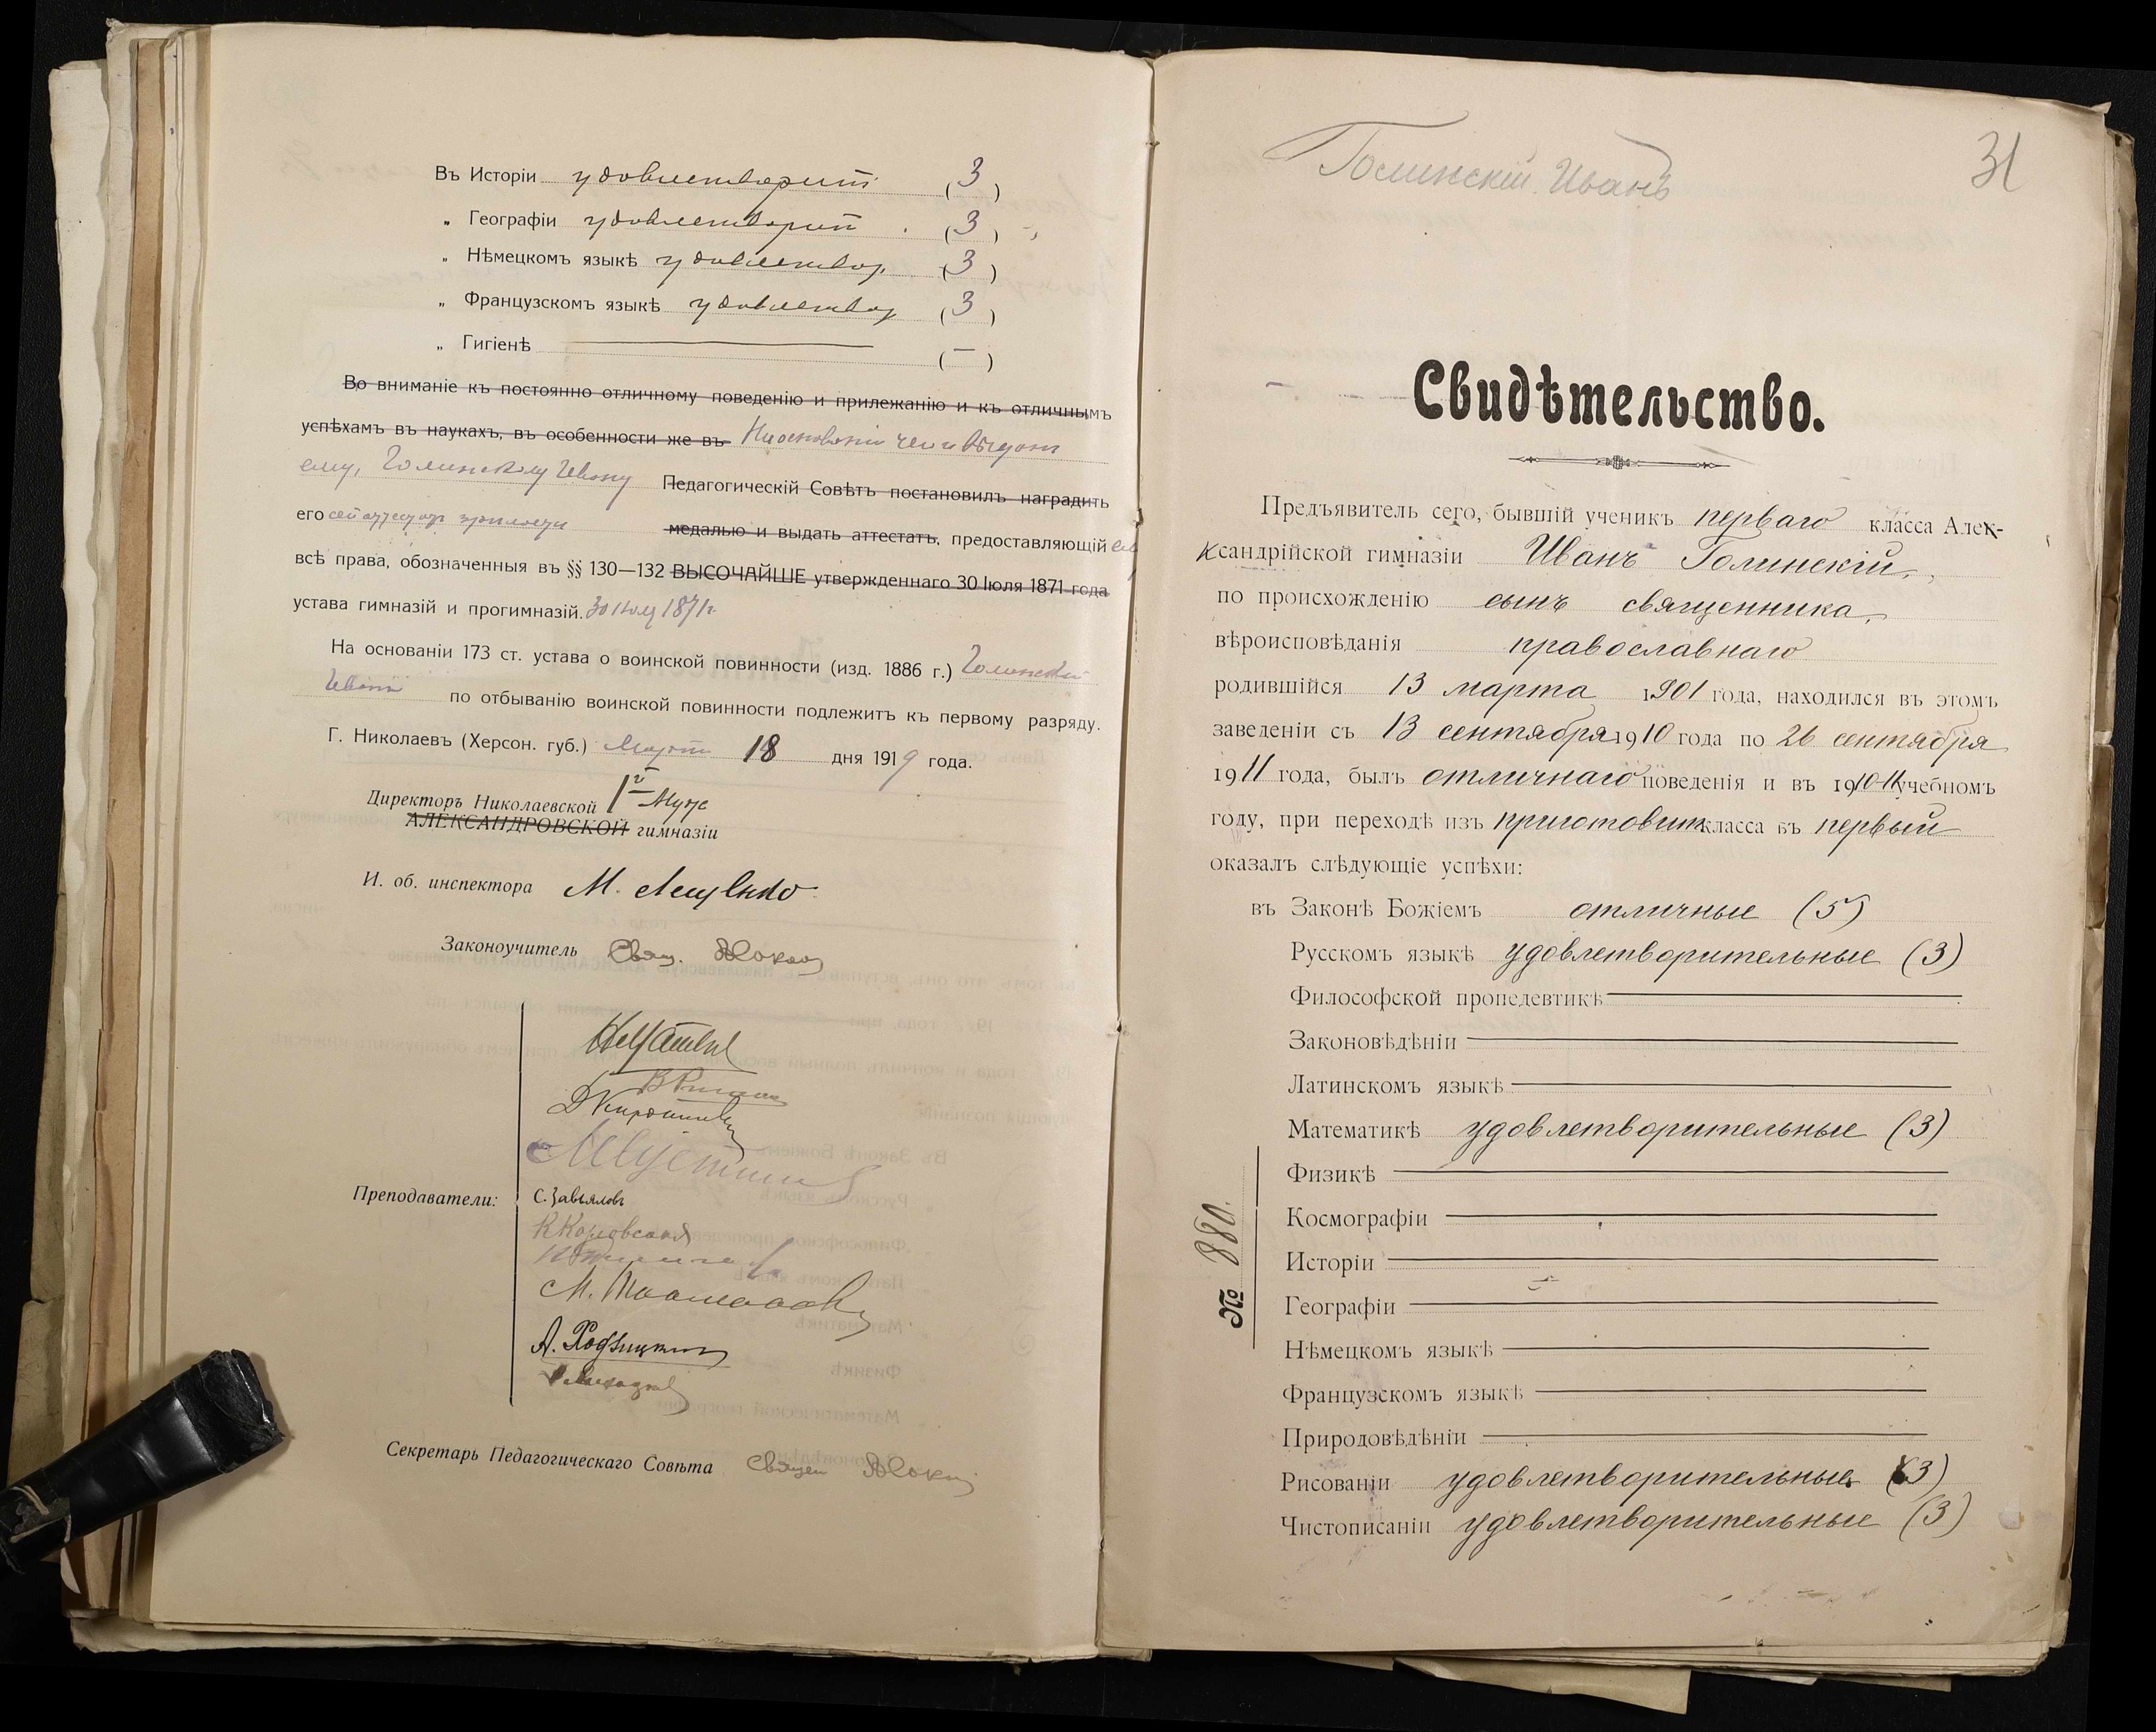 Въ Исторіи удовлетворит (3)
„ Географіи удовлетворит (3)
„ Нѣмецкомъ языкѣ удовлетвор. (3)
„ Французскомъ языкѣ удовлетвор (3)
„ Гигіенѣ (—)
Во вниманіе къ постоянно отличному поведенію и прилежанію и къ отличнымъ
успѣхамъ въ наукахъ, въ особенности же въ На основаніи чего и выданъ
ему, Голинскому Ивану Педагогическій Совѣтъ постановилъ наградить
его сей аттестатъ зрѣлости медалью и выдать аттестатъ, предоставляющій ему
всѣ права, обозначенныя въ §§ 130—132 ВЫСОЧАЙШЕ утвержденнаго 30 Іюля 1871 года
устава гимназій и прогимназій. 30 Іюля 1871 г.
На основаніи 173 ст. устава о воинской повинности (изд. 1886 г.) Голинскій
Иванъ по отбыванію воинской повинности подлежитъ къ первому разряду.
Г. Николаевъ (Херсон. губ.) Марта 18 дня 1919 года.
Директоръ Николаевской 1й Муж
АЛЕКСАНДРОВСКОЙ гимназіи
И. об. инспектора М.
Законоучитель Свящ.
Преподаватели:
С. Завьяловъ
М.
А.
Секретарь Педагогическаго Совѣта Священ
Голинскій Иванъ
31
Свидѣтельство.
Предъявитель сего, бывшій ученикъ перваго класса Алек-
ксандрійской гимназіи Иванъ Голинскій,
по происхожденію сынъ священника,
вѣроисповѣданія православнаго
родившійся 13 марта 1901 года, находился въ этомъ
заведеніи съ 13 сентября 1910 года по 26 сентября
1911 года, былъ отличнаго поведенія и въ 1910-11 учебномъ
году, при переходѣ изъ приготовит класса въ первый
оказалъ слѣдующіе успѣхи:
въ Законѣ Божіемъ отличные (5)
Русскомъ языкѣ удовлетворительные (3)
Философской пропедевтикѣ
Законовѣдѣніи
Латинскомъ языкѣ
Математикѣ удовлетворительные (3)
Физикѣ
Космографіи
Исторіи
Географіи
Нѣмецкомъ языкѣ
Французскомъ языкѣ
Природовѣдѣніи
Рисованіи удовлетворительные (3)
Чистописаніи удовлетворительные (3)
№ 880.